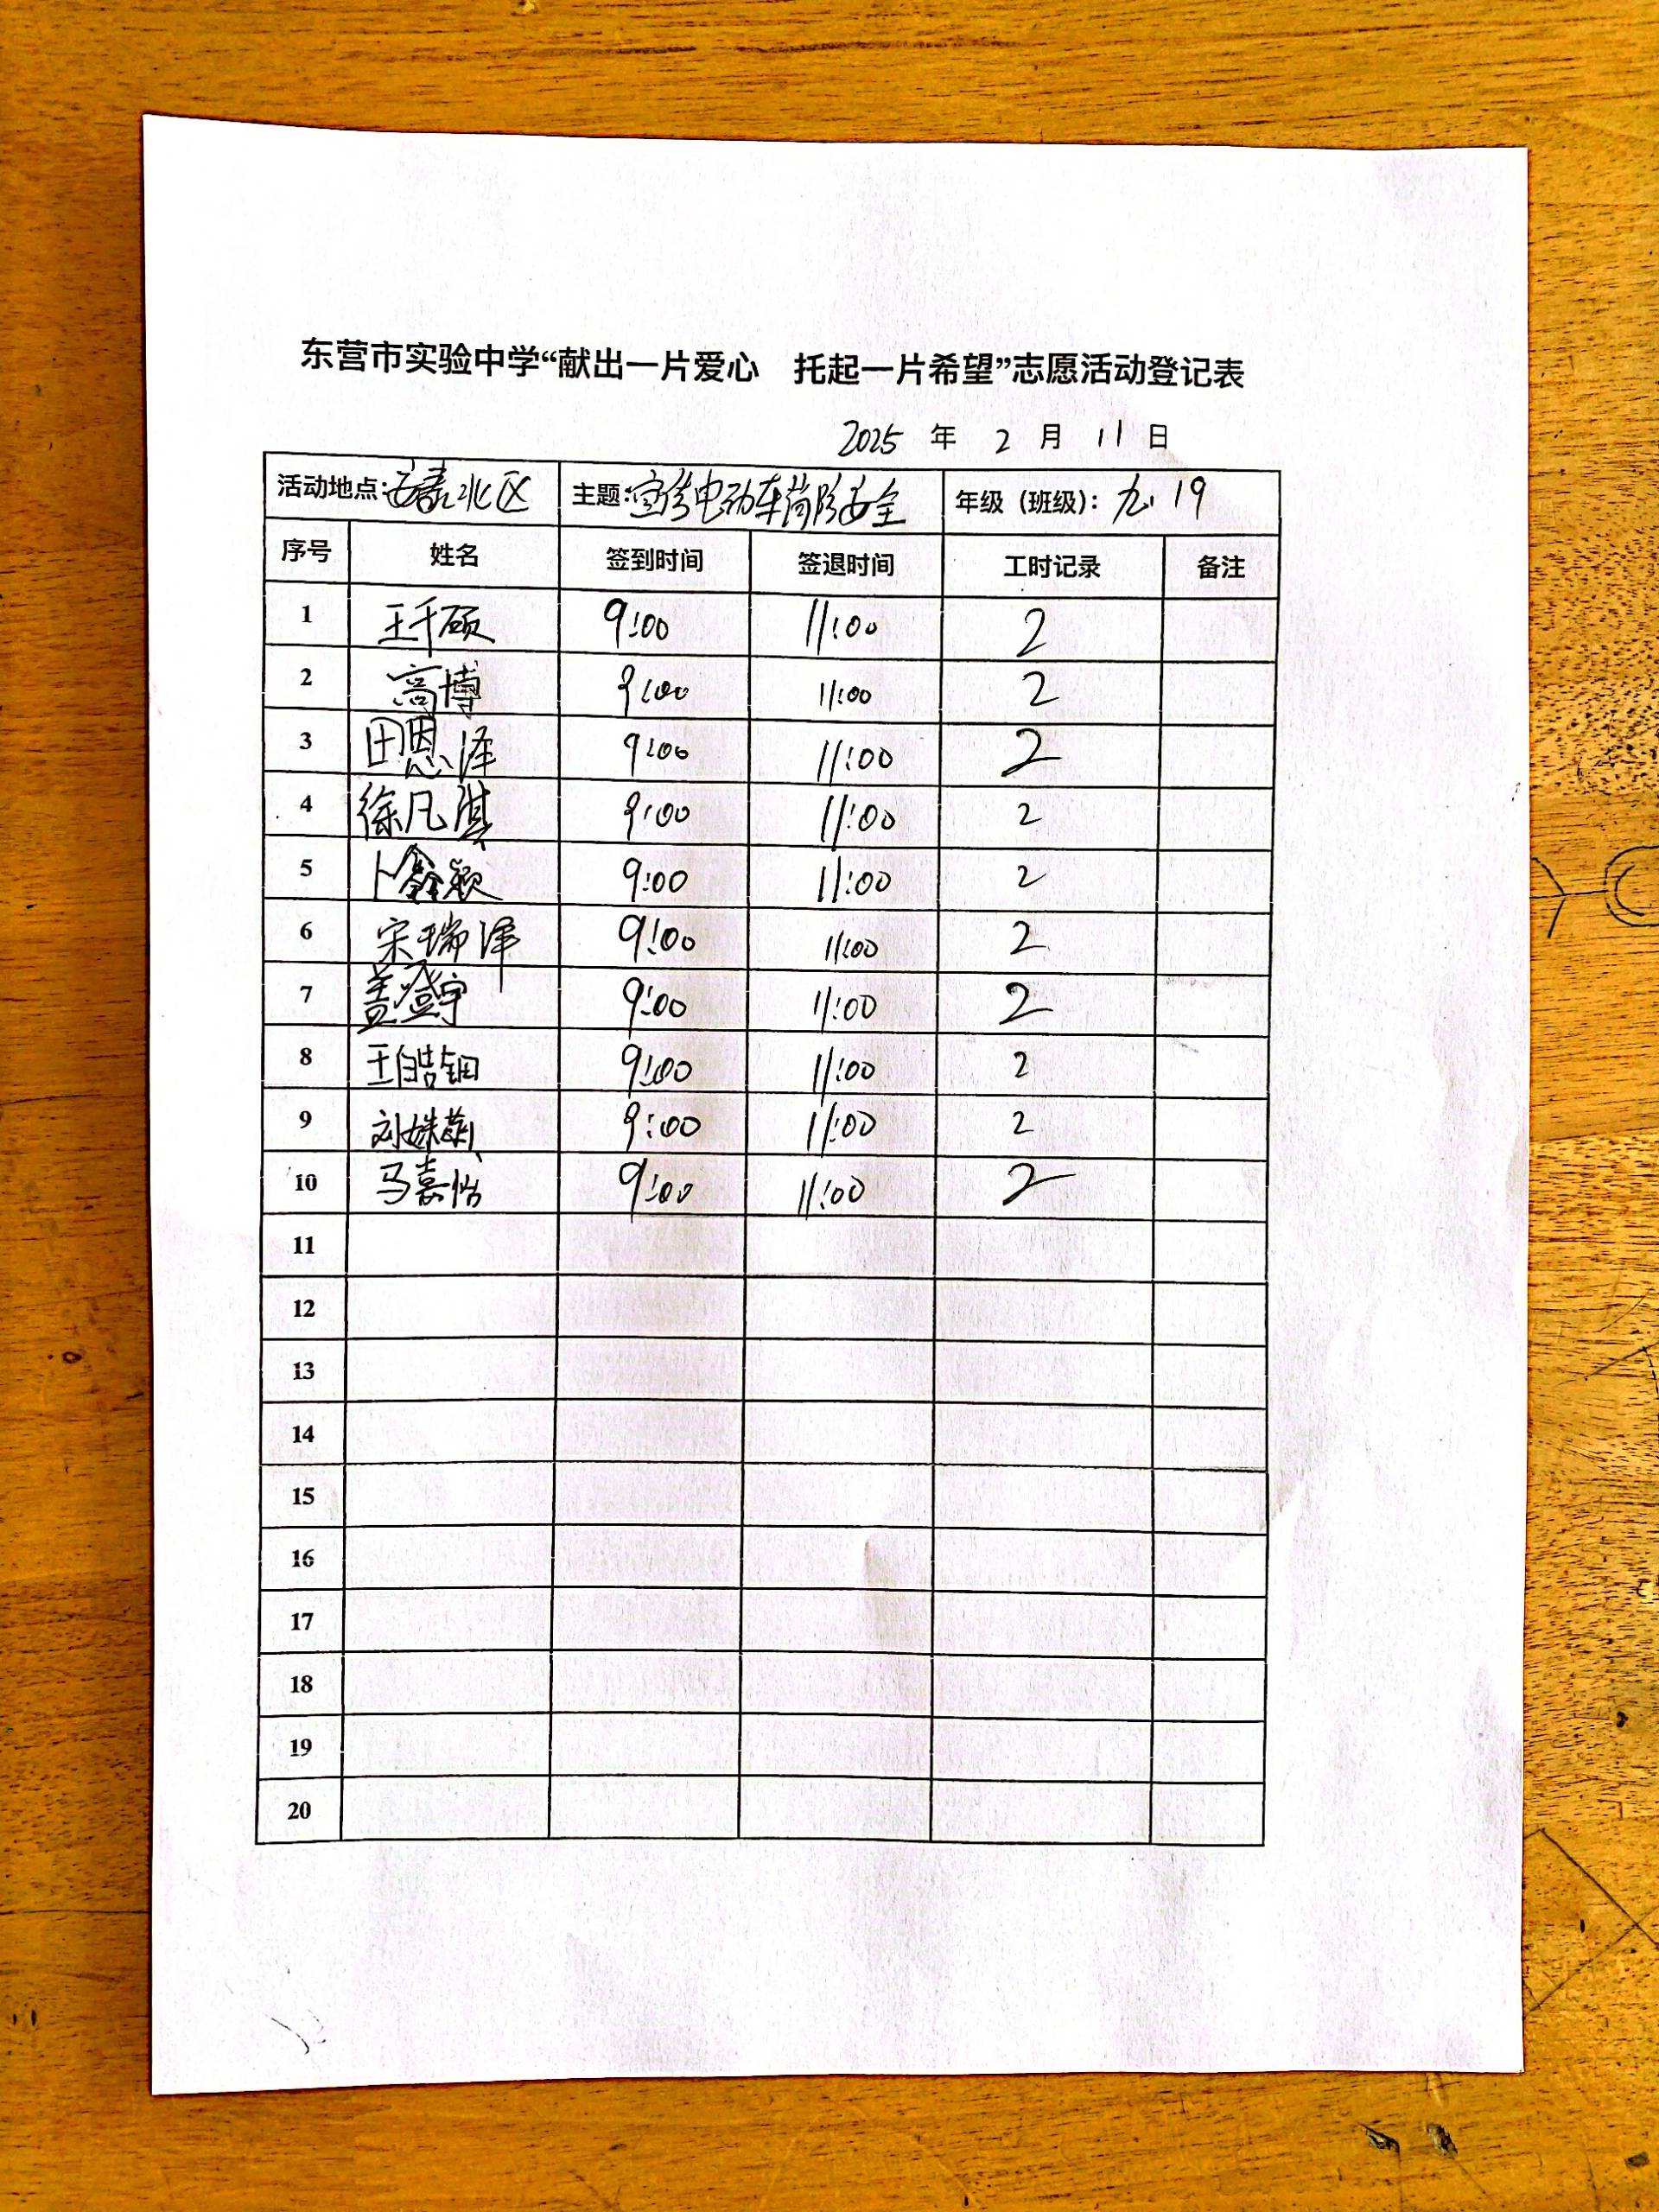 东营市实验中学“献出一片爱心 托起一片希望”志愿活动登记表
2025 年 2 月 11 日
活动地点: 北区 主题: 宣传电动车消防安全 年级（班级）: 九. 19
序号 姓名 签到时间 签退时间 工时记录 备注
1 王千硕 9:00 11:00 2
2 高博 9:00 11:00 2
3 田恩泽 9:00 11:00 2
4 徐凡淇 9:00 11:00 2
5 卜鑫颖 9:00 11:00 2
6 宋瑞泽 9:00 11:00 2
7 盖登宇 9:00 11:00 2
8 王皓钿 9:00 11:00 2
9 刘姝 9:00 11:00 2
10 马嘉怡 9:00 11:00 2
11
12
13
14
15
16
17
18
19
20